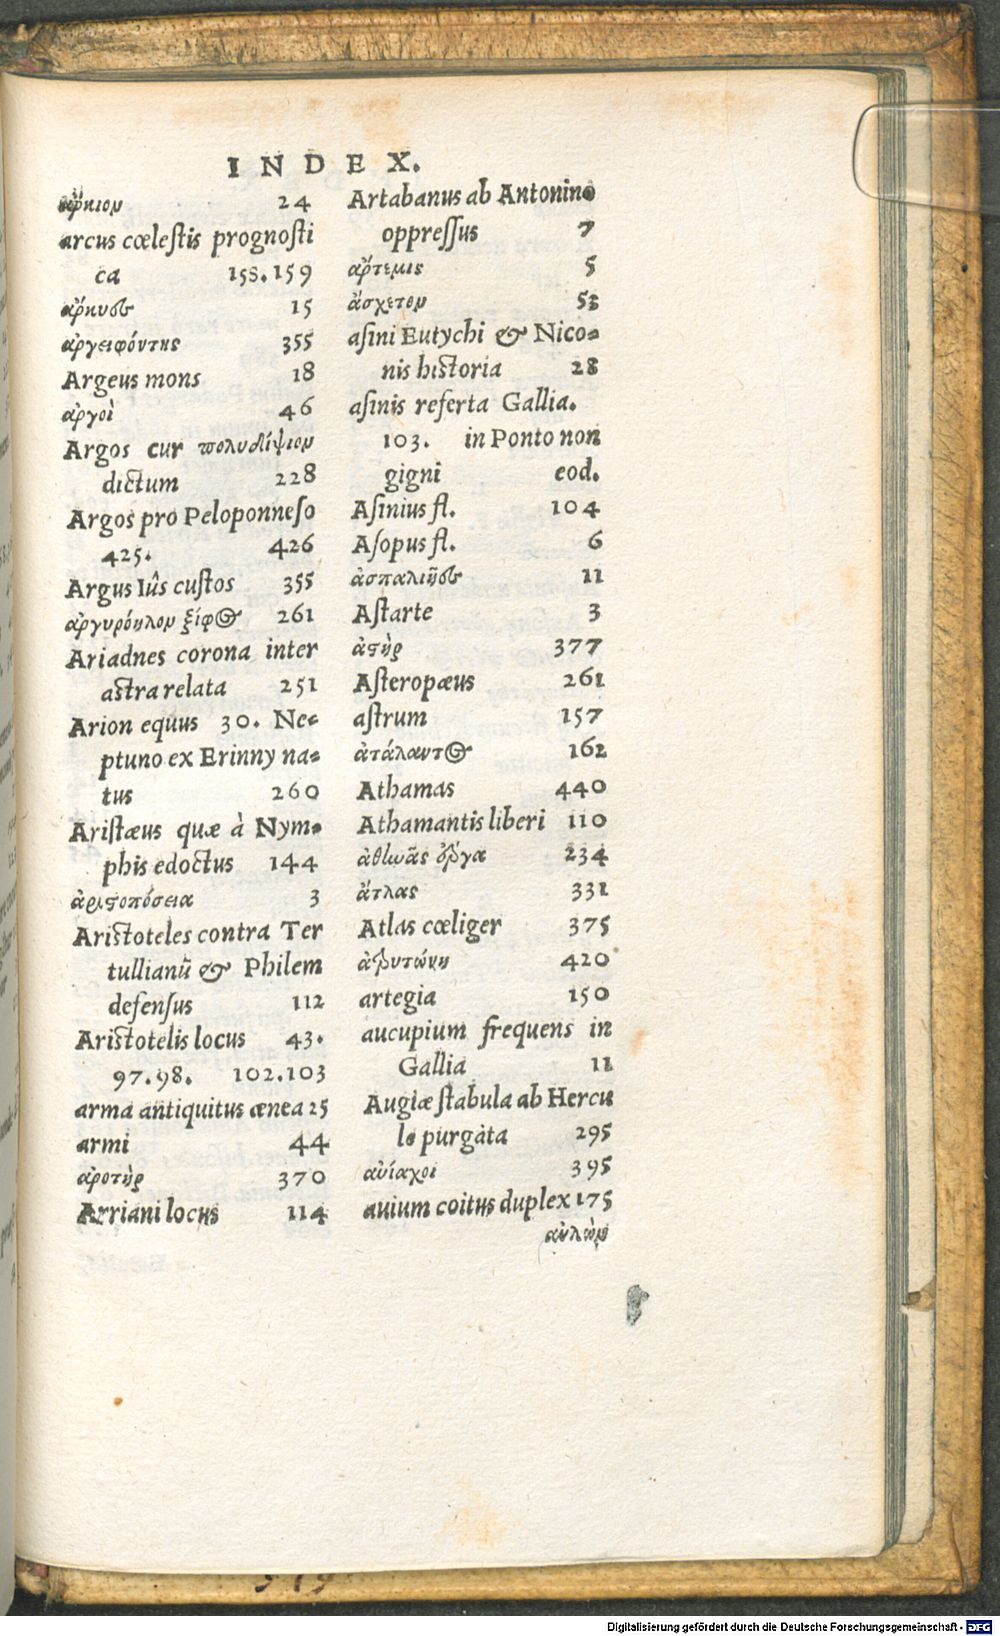 INDEX.
ἄρκιον 24
arcus cœlestis prognosti
ca 158.159
ἄρκυσ 15
ἀργειφόντης 355
Argeus mons 18
ἀργοὶ 46
Argos cur πολυδίψιον
dictum 228
Argos pro Peloponneso
425. 426
Argus Iûs custos 355
ἀργυρόηλον ξίφος 261
Ariadnes corona inter
astra relata 251
Arion equus 30. Ne-
ptuno ex Erinny na-
tus 260
Aristæus quæ à Nym-
phis edoctus 144
ἀριστοπόσεια 3
Aristoteles contra Ter
tullianũ & Philem
defensus 112
Aristotelis locus 43.
97.98. 102.103
arma antiquitus ænea 25
armi 44
ἀροτὴρ 370
Arriani locus 114
Artabanus ab Antonino
oppressus 7
ἄρτεμις 5
ἄσχετον 53
asini Eutychi & Nico-
nis historia 28
asinis referta Gallia.
103. in Ponto non
gigni eod.
Asinius fl. 104
Asopus fl. 6
ἀσπαλιῆυσ 11
Astarte 3
ἀστὴρ 377
Asteropæus 261
astrum 157
ἀτάλαντος 162
Athamas 440
Athamantis liberi 110
ἀθηνᾶς ἔργα 234
ἄτλας 331
Atlas cœliger 375
ἀτρυτώνη 420
artegia 150
aucupium frequens in
Gallia 11
Augiæ stabula ab Hercu
le purgata 295
αὐίαχοι 395
auium coitus duplex 175
αὐλὼν
Digitalisierung gefördert durch die Deutsche Forschungsgemeinschaft - DFG